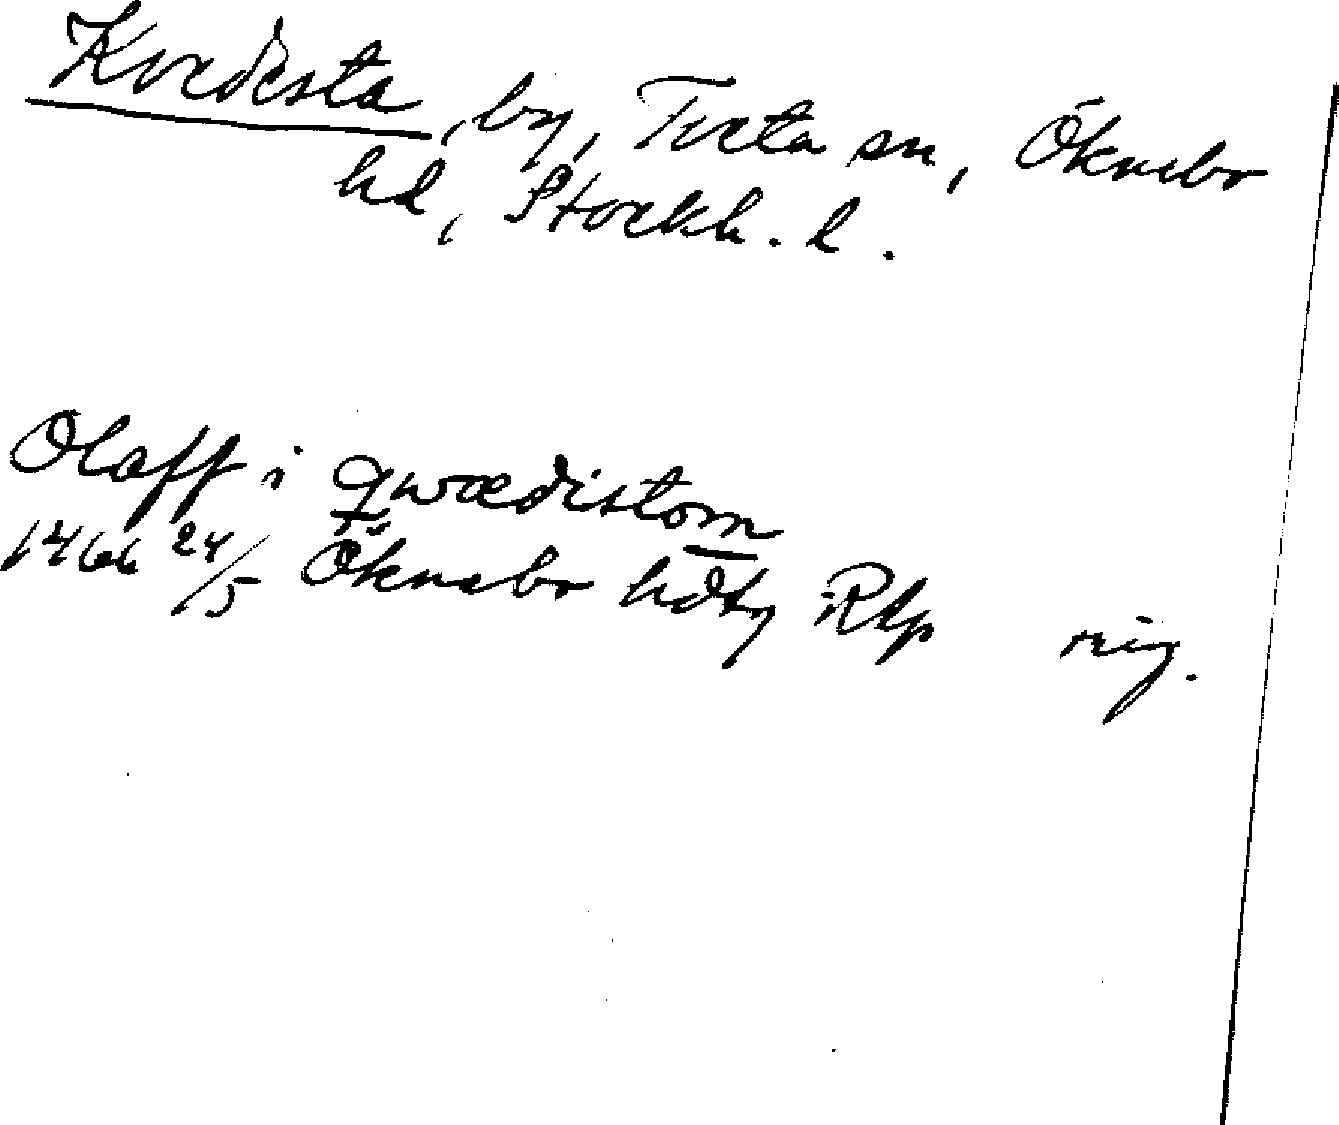 Kvedesta, by, Tveta sn, Öknebo
hd, Stockh. l.
Olaff i qwædistom
1466 24/5 Öknebo hdtg RAp sig.